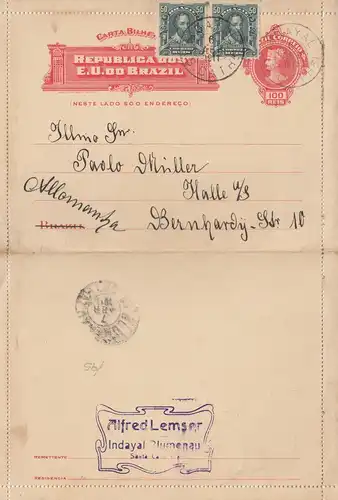 CARTA BILHETE
50 50
REPUBLICA DOS
E.U. DO BRAZIL
100
REIS
NESTE LADO SÓ O ENDEREÇO
Illmo Snr.
Paolo Müller
Halle a/S
Allemanha
BRASIL
Bernhardy-Str 10
56/
Alfred Lemser
Indayal Blumenau
Santa
REMETTENTE
RESIDENCIA